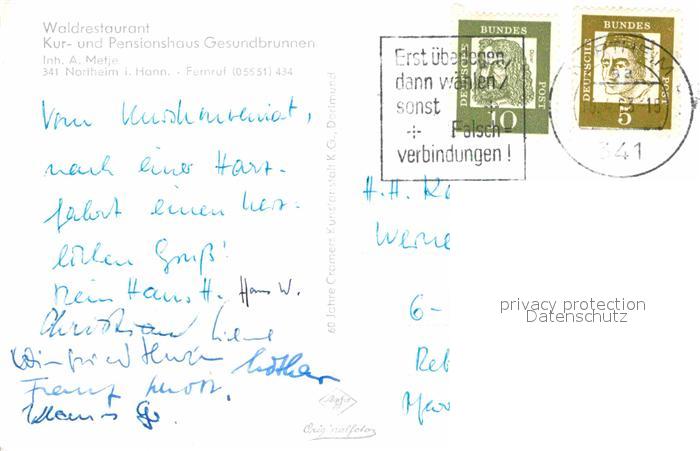 Waldrestaurant
Kur- und Pensionshaus Gesundbrunnen
Inh. A. Metje
341 Northeim i. Hann. - Fernruf (05551) 434
Vom
nach einer Harz-
fahrt einen herz-
lichen Gruß!
Dein Hans H. Hans W.
Christian
Winfried Lothar
Franz
Klaus
60 Jahre Cramers Kunstanstalt K G., Dortmund
Agfa
Originalfoto
Erst überlegen,
dann wählen
sonst
Falsch-
verbindungen!
DEUTSCHE BUNDES POST
10
DEUTSCHE BUNDES POST
5
341
H. H.
Werne
6-
privacy protection
Datenschutz